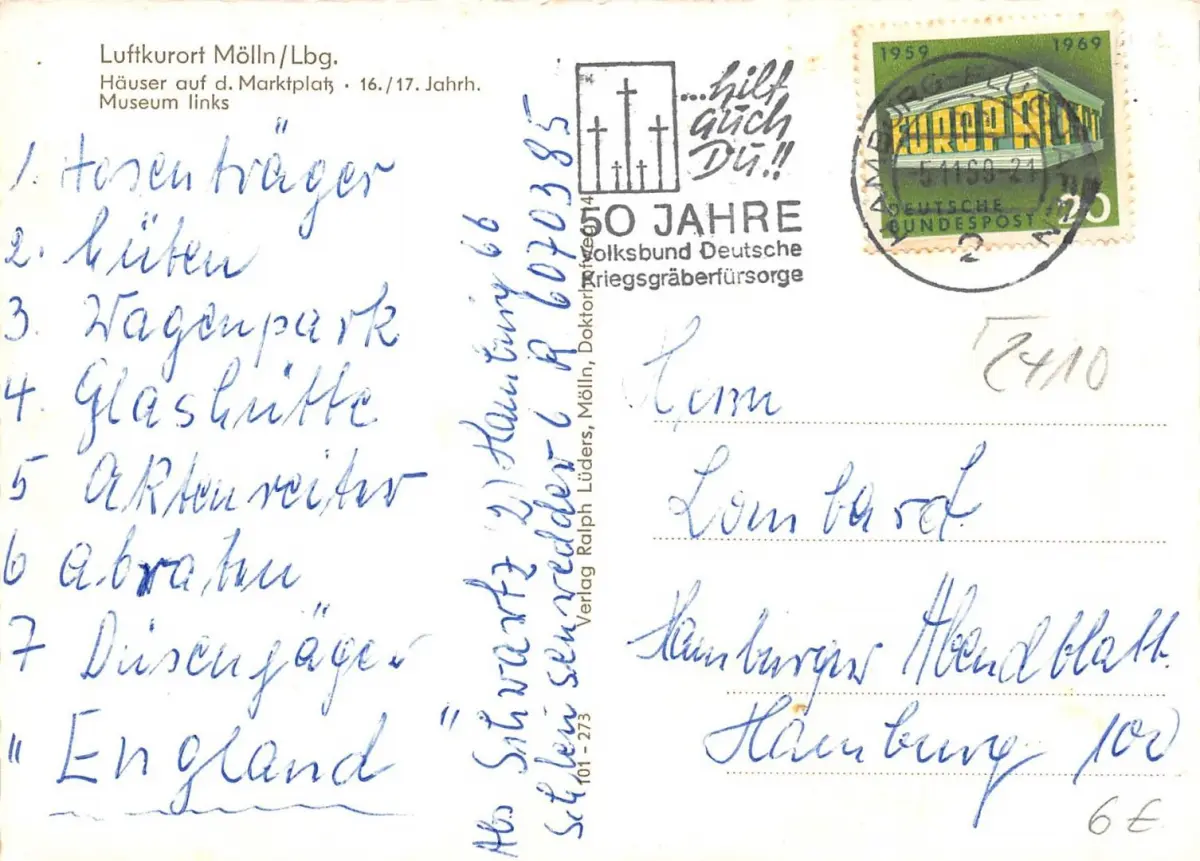 Luftkurort Mölln/Lbg.
Häuser auf d. Marktplatz · 16./17. Jahrh.
Museum links
1. Hosenträger
2. hüten
3. Wagenpark
4. Glashütte
5 Aktenreiter
6 abraten
7 Düsenjäger
"England"
Abs Schwartz 2) Hamburg 66
Schleusenredder 6 R 6070385
Verlag Ralph Lüders, Mölln, Doktorhofweg 14
101 - 273
...hilf
auch
DU!!
50 JAHRE
Volksbund Deutsche
Kriegsgräberfürsorge
1959 1969
EUROPA CEPT
DEUTSCHE
BUNDESPOST 20
-5.11.69-21
2
2410
Herrn
Lombard
Hamburger Abendblatt.
Hamburg 100
6 €